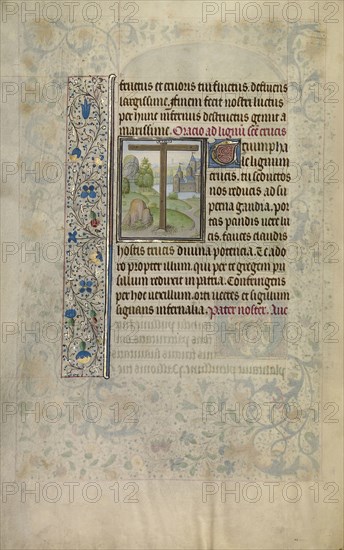 fructus et cruoris tui fluctus. defluens
largissime. finem fecit nostri luctus
per hunc inferius destructus gemit a
marissime. Oracio ad lignum sce crucis
Triumpha
le lignum
crucis. tu seductos
nos reducas ad su
perna gaudia. por
tas pandis vere lu
cis. fauces claudis
hostis crucis divina potencia. Te ado
ro propter illum. qui per te gregem pu
sillum reduxit in patria. Confringens
per hoc vexillum. oti vectes et sigillum
signans infernalia. Pater noster. Aue
PHOTO12